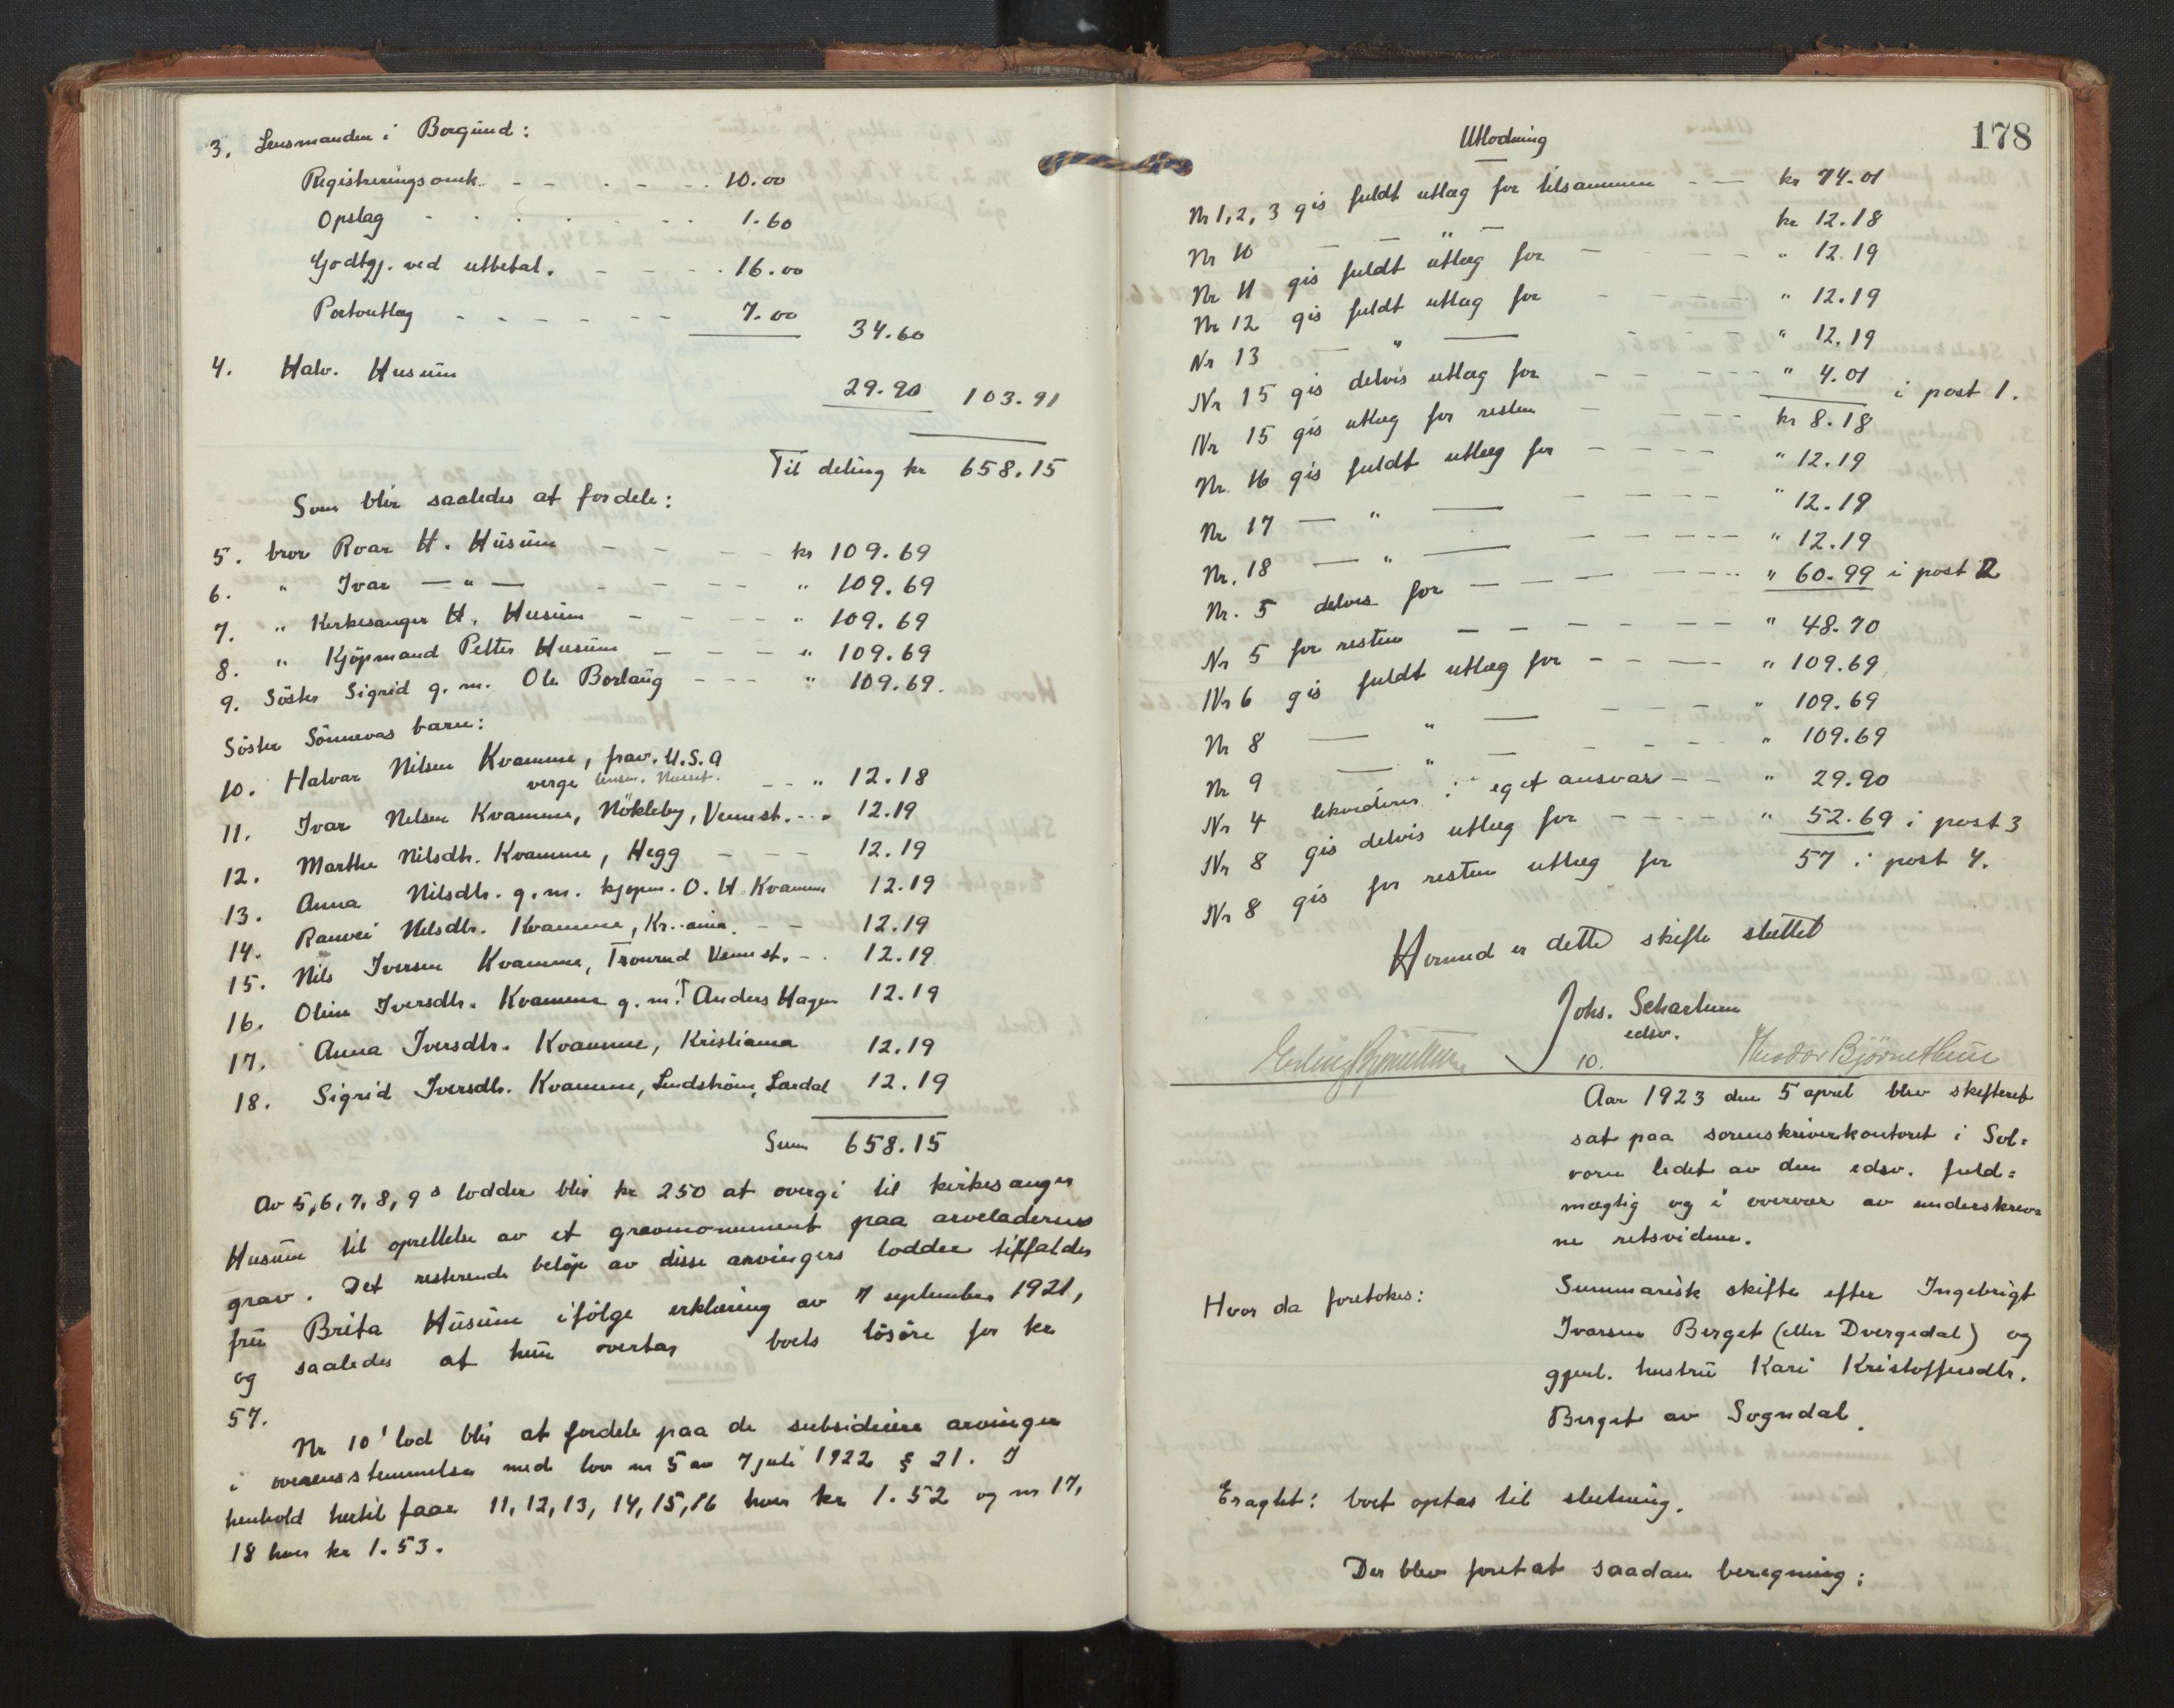 3. Lensmanden i Borgund:
Registreringsomk. - - - - - 10.00
Opslag - - - - - - 1.60
Godtgj. ved utbetal. - - - - 16.00
Portoutlæg - - - - - - 7.00
34.60
4. Halv. Husum
29.90 103.91
Til deling kr 658.15
Som blir saaledes at fordele:
5. bror Roar H. Husum - - - - kr 109.69
6. " Ivar — " — - - - - " 109.69
7. " Kirkesanger H. Husum - - - - " 109.69
8. " Kjøpmand Petter Husum - - - - " 109.69
9. Söster Sigrid g. m. Ole Borlaug - - - " 109.69.
Söster Sönnevas barn:
10. Halvar Nilsen Kvamme, frav. U.S.A
verge lensm. - - " 12.18
11. Ivar Nilsen Kvamme, Nökleby, Vennst. - - " 12.19
12. Marthe Nilsdtr. Kvamme, Hegg - - - 12.19
13. Anna Nilsdtr. g.m. kjøpm. O. H. Kvamme 12.19
14. Ranvei Nilsdtr. Kvamme, Kr..ania. - - 12.19
15. Nils Iversen Kvamme, Vennst. - . 12.19
16. Oline Iversdtr. Kvamme g. m. Anders Hagen 12.19
17. Anna Iversdtr. Kvamme, Kristiania 12.19
18. Sigrid Iversdtr. Kvamme, Lindström, Lærdal 12.19
Sum 658.15
Av 5, 6, 7, 8, 9 s lodder blir kr 250 at overgi til kirkesanger
Husum til oprettelse av et gravmonument paa arveladerens
grav. Det resterende beløp av disse arvingers lodder tilfalder
fru Brita Husum ifölge erklæring av 7 september 1921,
og saaledes at hun overtar boets lösöre for kr
57.
Nr 10' lod blir at fordele paa de subsidiære arvinger
i overensstemmelse med lov nr 5 av 7 juli 1922 § 21. I
henhold hertil faar 11, 12, 13, 14, 15, 16 hver kr 1.52 og nr 17,
18 hver kr 1.53.
178
Utlodning
Nr 1, 2, 3 gis fuldt utlæg for tilsammen - — kr 74.01
Nr 10 — — " — kr 12.18
Nr 11 gis fuldt utlæg for - - - - - " 12.19
Nr 12 gis fuldt utlæg for - - - - - " 12.19
Nr 13 — " — " 12.19
Nr 15 gis delvis utlæg for - - - - - " 4.01 i post 1.
Nr 15 gis utlæg for resten - - - - kr 8.18
Nr. 16 gis fuldt utlæg for - - - - " 12.19
Nr 17 — " — - - - - " 12.19
Nr. 18 — " — - - - - " 12.19
Nr. 5 delvis for — - - - - - " 60.99 i post 2
Nr 5 for resten — - - - - - " 48.70
Nr 6 gis fuldt utlæg for - - — - " 109.69
Nr 8 — " — - - - - " 109.69
Nr 9 — " — - - - - " 109.69
Nr 4 likvideres i eget ansvar - - " 29.90
Nr 8 gis delvis utlæg for - - - - " 52.69 i post 3
Nr 8 gis for resten utlæg for 57 i post 4.
Hermed er dette skifte sluttet
Johs. Schartum
edsv.
Erling Bjørnethun 10. Theodor Bjørnethun
Aar 1923 den 5 april blev skifteret
sat paa sorenskriverkontoret i Sol=
vorn ledet av den edsv. fuld=
mægtig og i overvær av underskrev=
ne retsvidner.
Hvor da foretokes:
Summarisk skifte efter Ingebrigt
Ivarsen Berget (eller Dvergedal) og
gjenl. hustru Kari Kristoffersdtr.
Berget av Sogndal.
Eragtet: boet optas til slutning.
Der blev foretat saadan beregning: